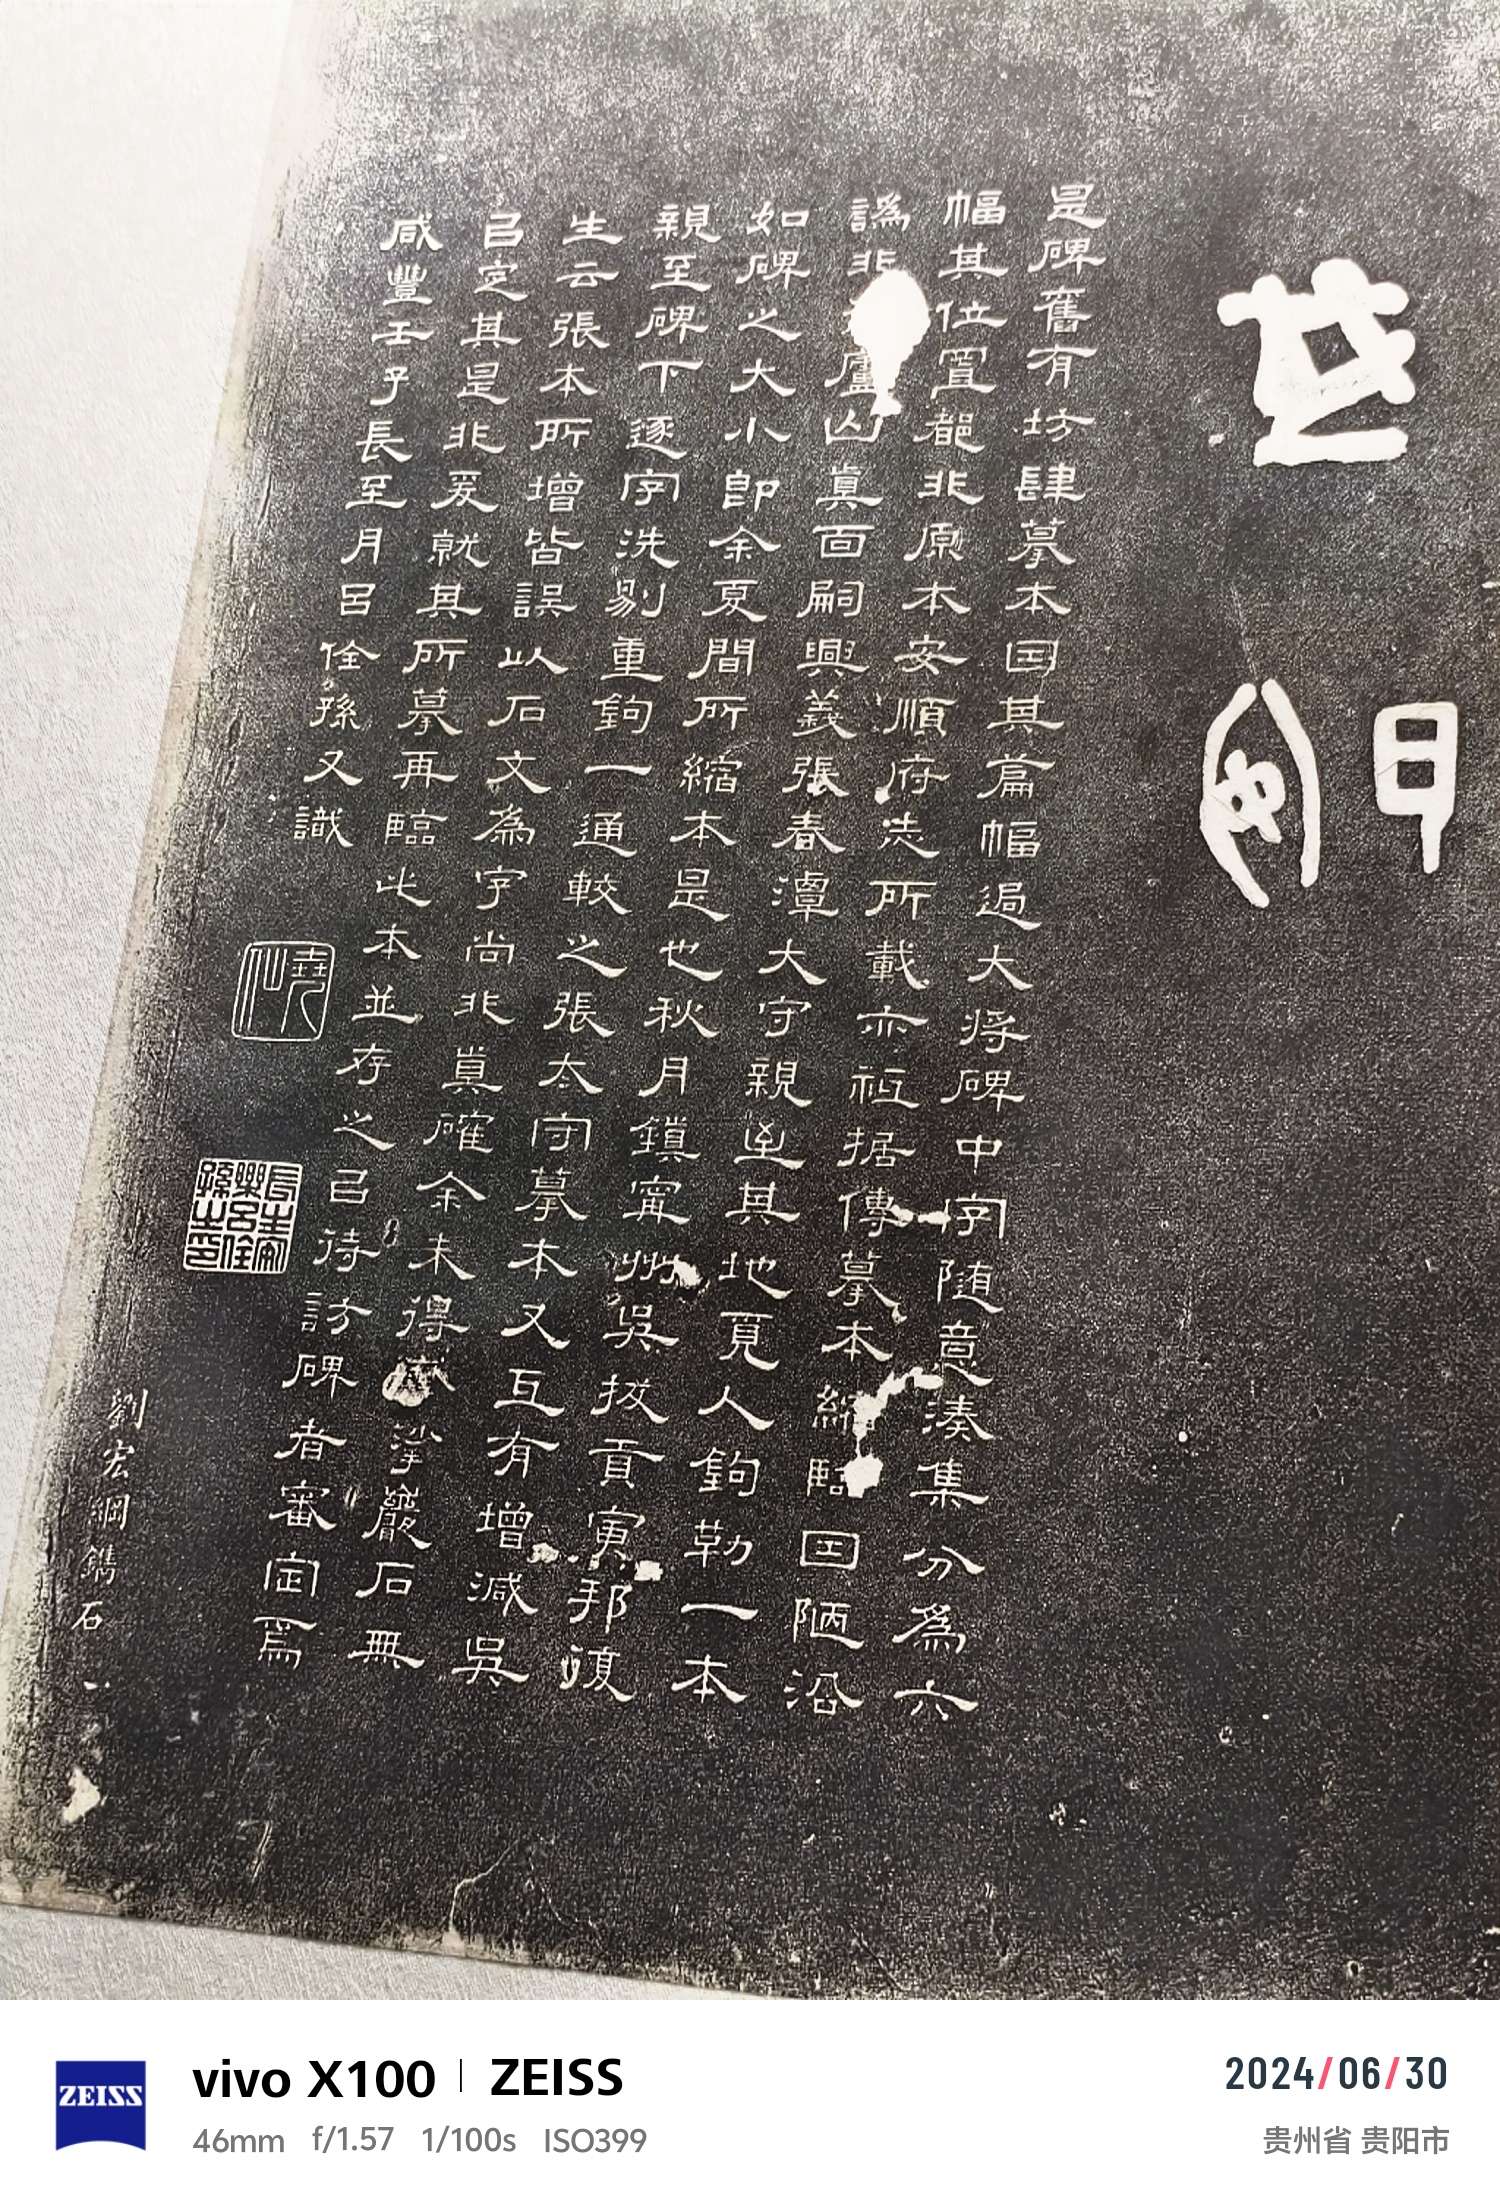 是碑舊有坊肆摹本因其篇幅過大將碑中字隨意湊集分為六
幅其位置都非原本安順府志所載亦祗据傳摹本縮臨因陋沿
譌非盧山真面嗣興義張春潭大守親至其地覓人鉤勒一本
如碑之大小即余夏間所縮本是也秋月鎮甯州吳拔貢寅邦復
親至碑下逐字洗剔重鉤一通較之張太守摹本又互有增減吳
生云張本所增皆誤以石文為字尚非真確余未得摩挲巖石無
㠯定其是非爰就其所摹再臨此本並存之㠯待訪碑者審定焉
咸豐壬子長至月呂佺孫又識
堯仙
長生安樂呂佺孫之印
劉宏綱鐫石
ZEISS
vivo X100 | ZEISS
46mm f/1.57 1/100s ISO399
2024/06/30
贵州省 贵阳市